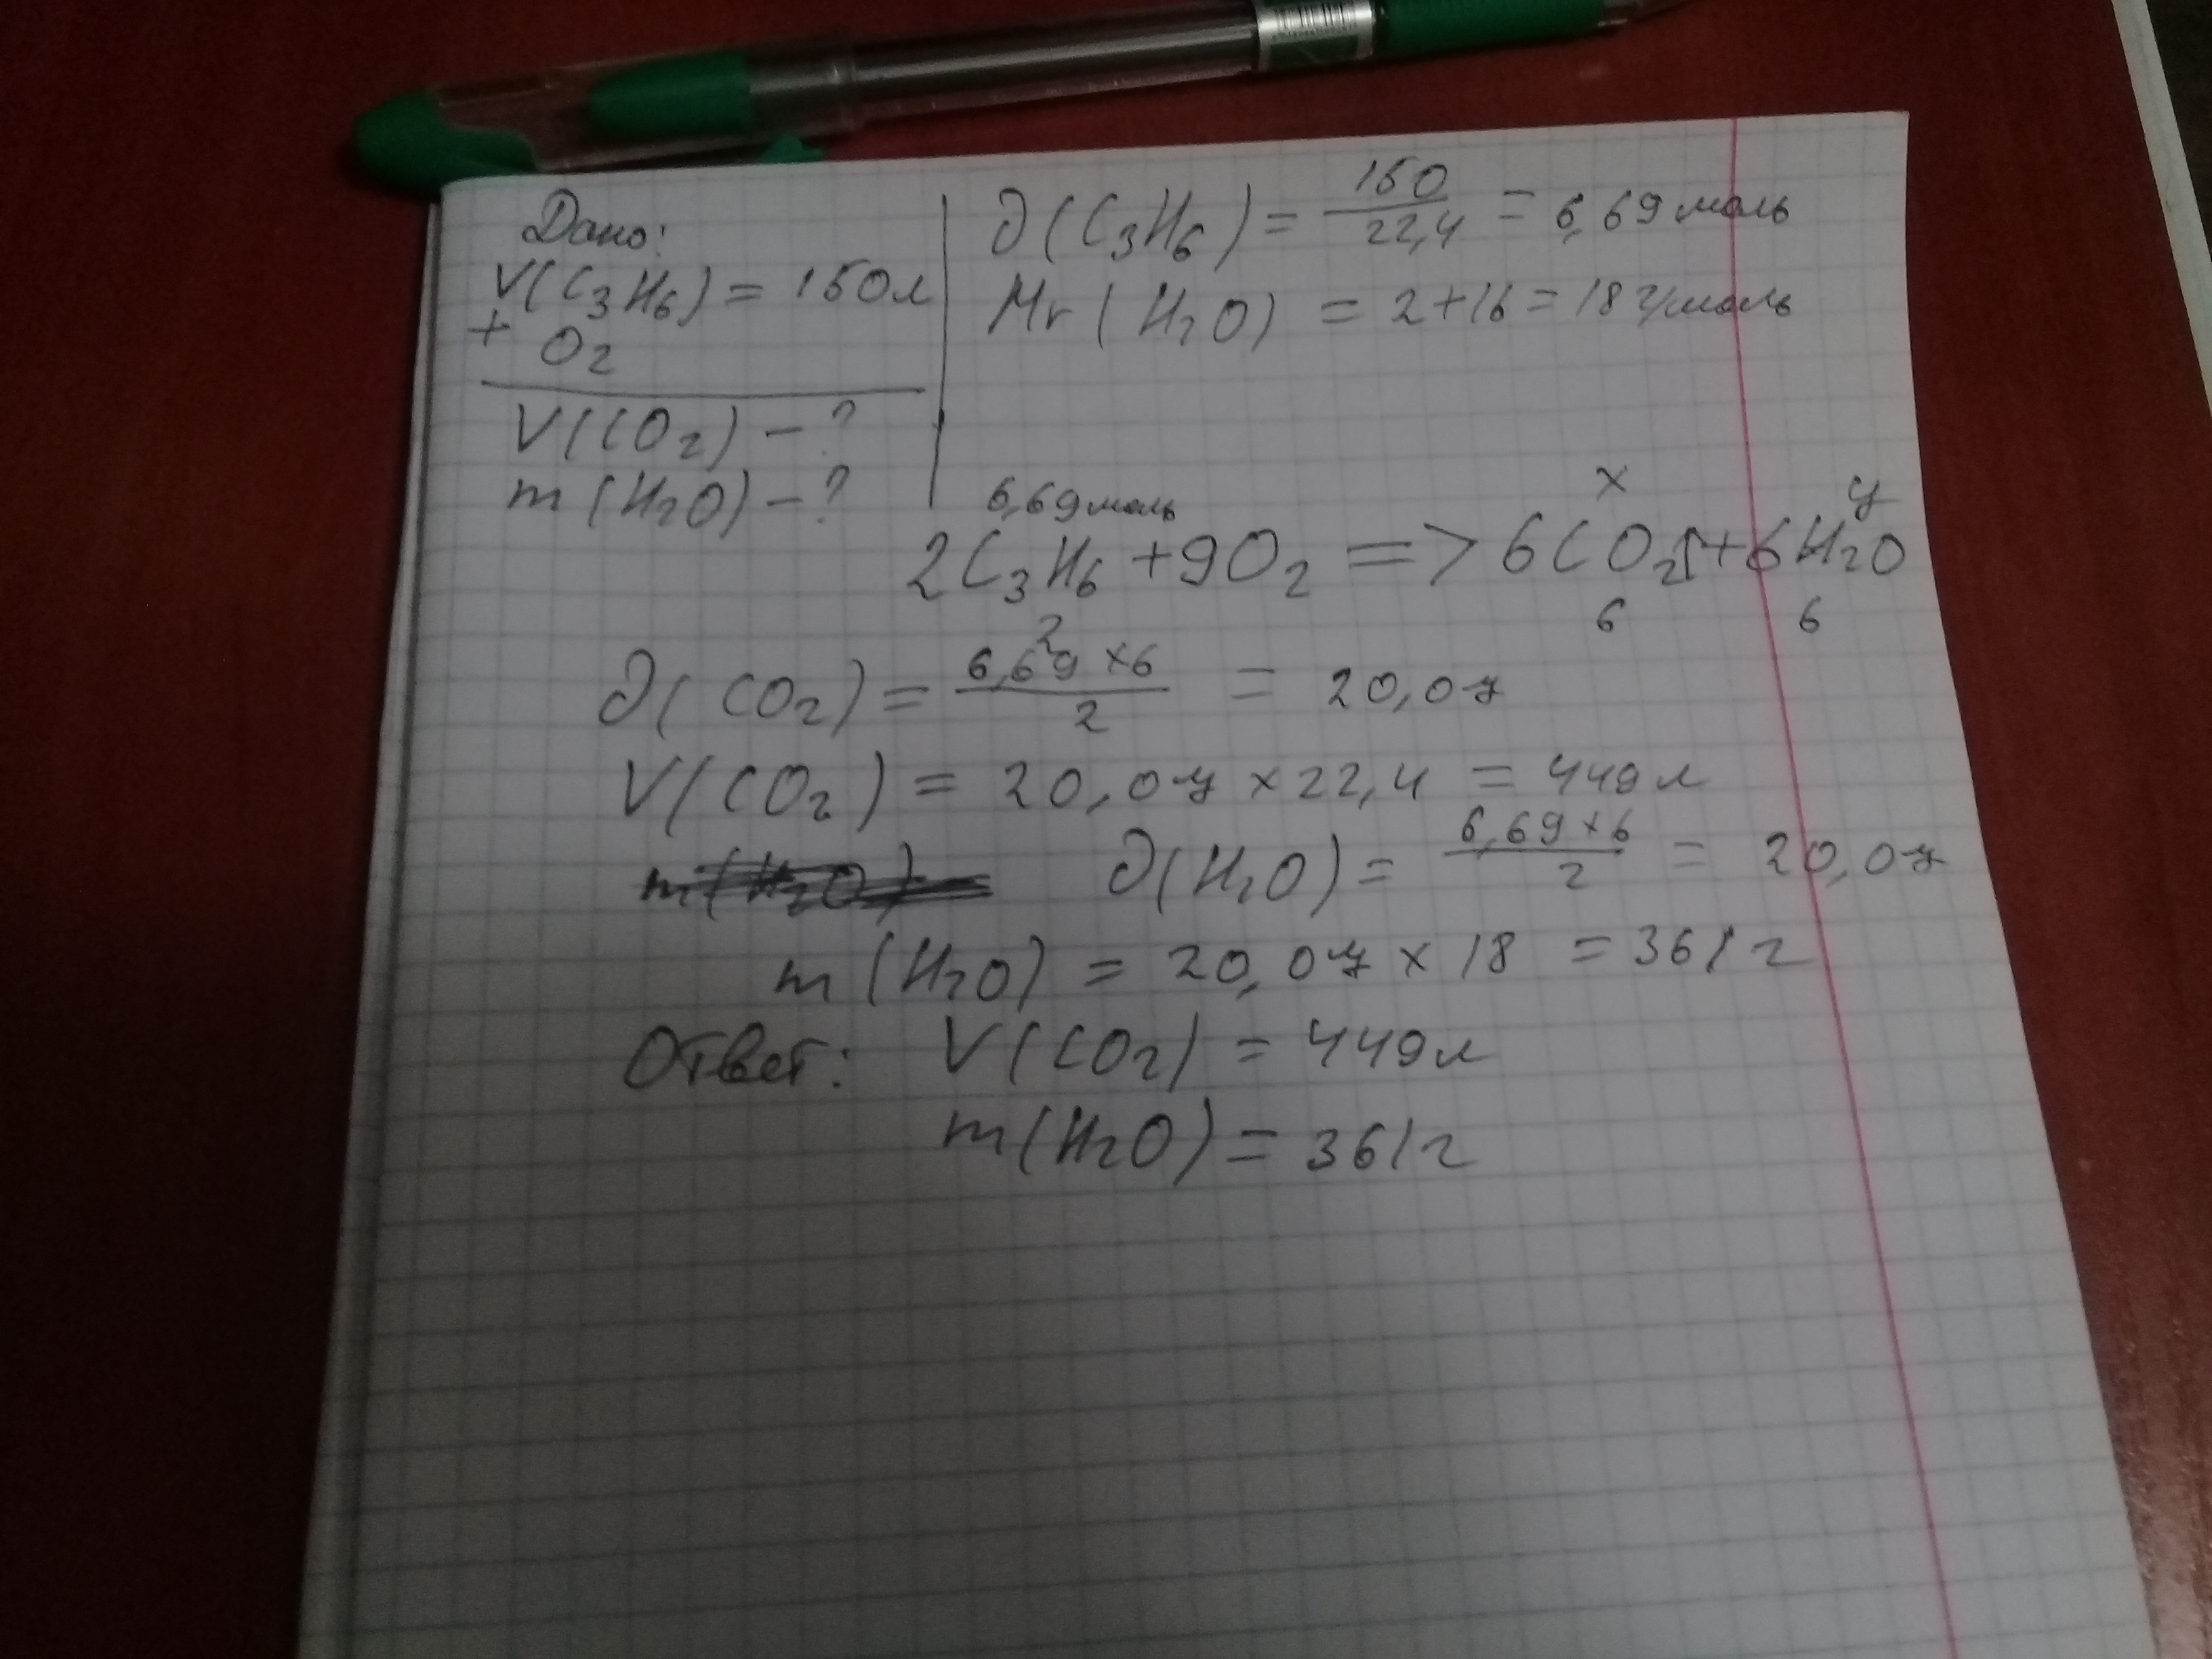 Дано:
V(C3H6) = 150л
+ O2
V(CO2) - ?
m(H2O) - ?
∂(C3H6) = 150/22,4 = 6,69 моль
Mr(H2O) = 2+16 = 18 г/моль
6,69 моль x y
2C3H6 + 9O2 => 6CO2↑ + 6H2O
2 6 6
∂(CO2) = 6,69 × 6/2 = 20,07
V(CO2) = 20,07 × 22,4 = 449 л
∂(H2O) = 6,69 × 6/2 = 20,07
m(H2O) = 20,07 × 18 = 361 г
Ответ: V(CO2) = 449л
m(H2O) = 361г